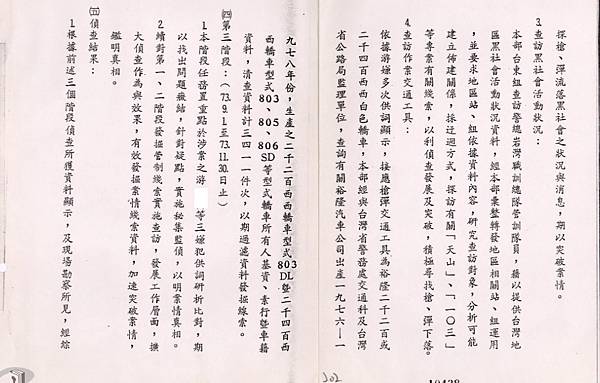 探槍、彈流落黑社會之狀況與消息,期以突破案情。
3.查訪黑社會活動狀況:
本部台東組查訪警總岩灣職訓總隊管訓隊員,藉以提供台灣地
區黑社會活動狀況資料,經本部彙整轉發地區相關站、組運用
,並要求地區站、組依據資料內容,研究查訪對象,分析可能
建立佈建關係,採迂迴方式,探訪有關「天山」、「一〇三」
等專案有關線索,以利偵查發展及突破,積極尋找槍、彈下落。
4.查訪作案交通工具:
依據游嫌多次供詞顯示,接應槍彈交通工具為裕隆二千二百或
二千四百西西白色轎車,本部經與台灣省警務處交通科及台灣
省公路局監理單位,查詢有關裕隆汽車公司出產一九七六-一
九七八年份,生產之二千二百西西轎車型式803DL暨二千四百西
西轎車型式803、805、806SD等型式轎車所有人基資、素行暨車籍
資料,清查資料計三四一一件次,以期過濾資料發掘線索。
㈣第三階段:(73.9.1.至73.11.30.日止)
1.本階段任務置重點於涉案之游 等三嫌犯供詞研析比對,期
以找出問題癥結,針對疑點,實施秘集監偵,以明案情真相。
2.續對第一、二階段發掘管制線索實施查訪,發展工作層面,擴
大偵查作為與效果,有效發掘案情線索資料,加速突破案情,
鑑明真相。
㈤偵查結果:
1.根據前述三個階段偵查所獲資料顯示,及現場勘察所見,經綜
202
10438